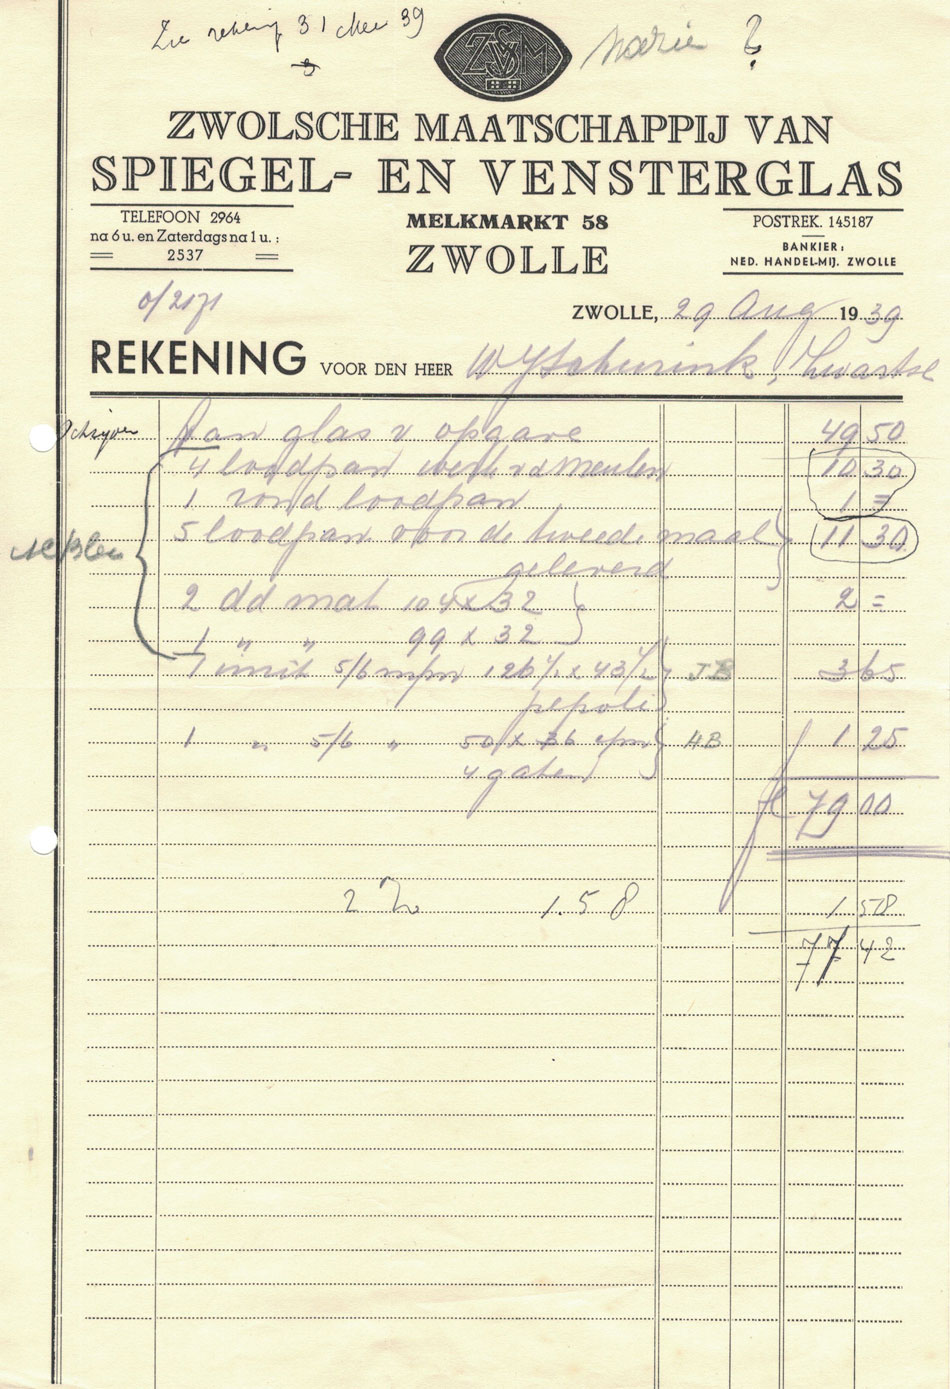 Zie rekening 31 Mei 39
ZVSVM
Marie ?
ZWOLSCHE MAATSCHAPPIJ VAN
SPIEGEL- EN VENSTERGLAS
TELEFOON 2964
na 6 u. en Zaterdags na 1 u. :
2537
MELKMARKT 58
ZWOLLE
POSTREK. 145187
BANKIER:
NED. HANDEL-MIJ. ZWOLLE
0/2171
ZWOLLE, 29 Aug 1939
REKENING VOOR DEN HEER W Schurink, Zwartsl
Aan glas v opgave 49 50
4 loodpan werk vd Meulen 10 30
1 rond loodpan 1 =
5 loodpan voor de tweede maal 11 30
geleverd
2 dd mat 104 x 32 2 =
1 " " 99 x 32
1 5/6 126 ½ x 43 ½ JB 3 65
1 " 5/6 " 50 x 36 c/m HB 1 25
4 gaten
fl 79 00
2 % 1.58 1.58
77 42